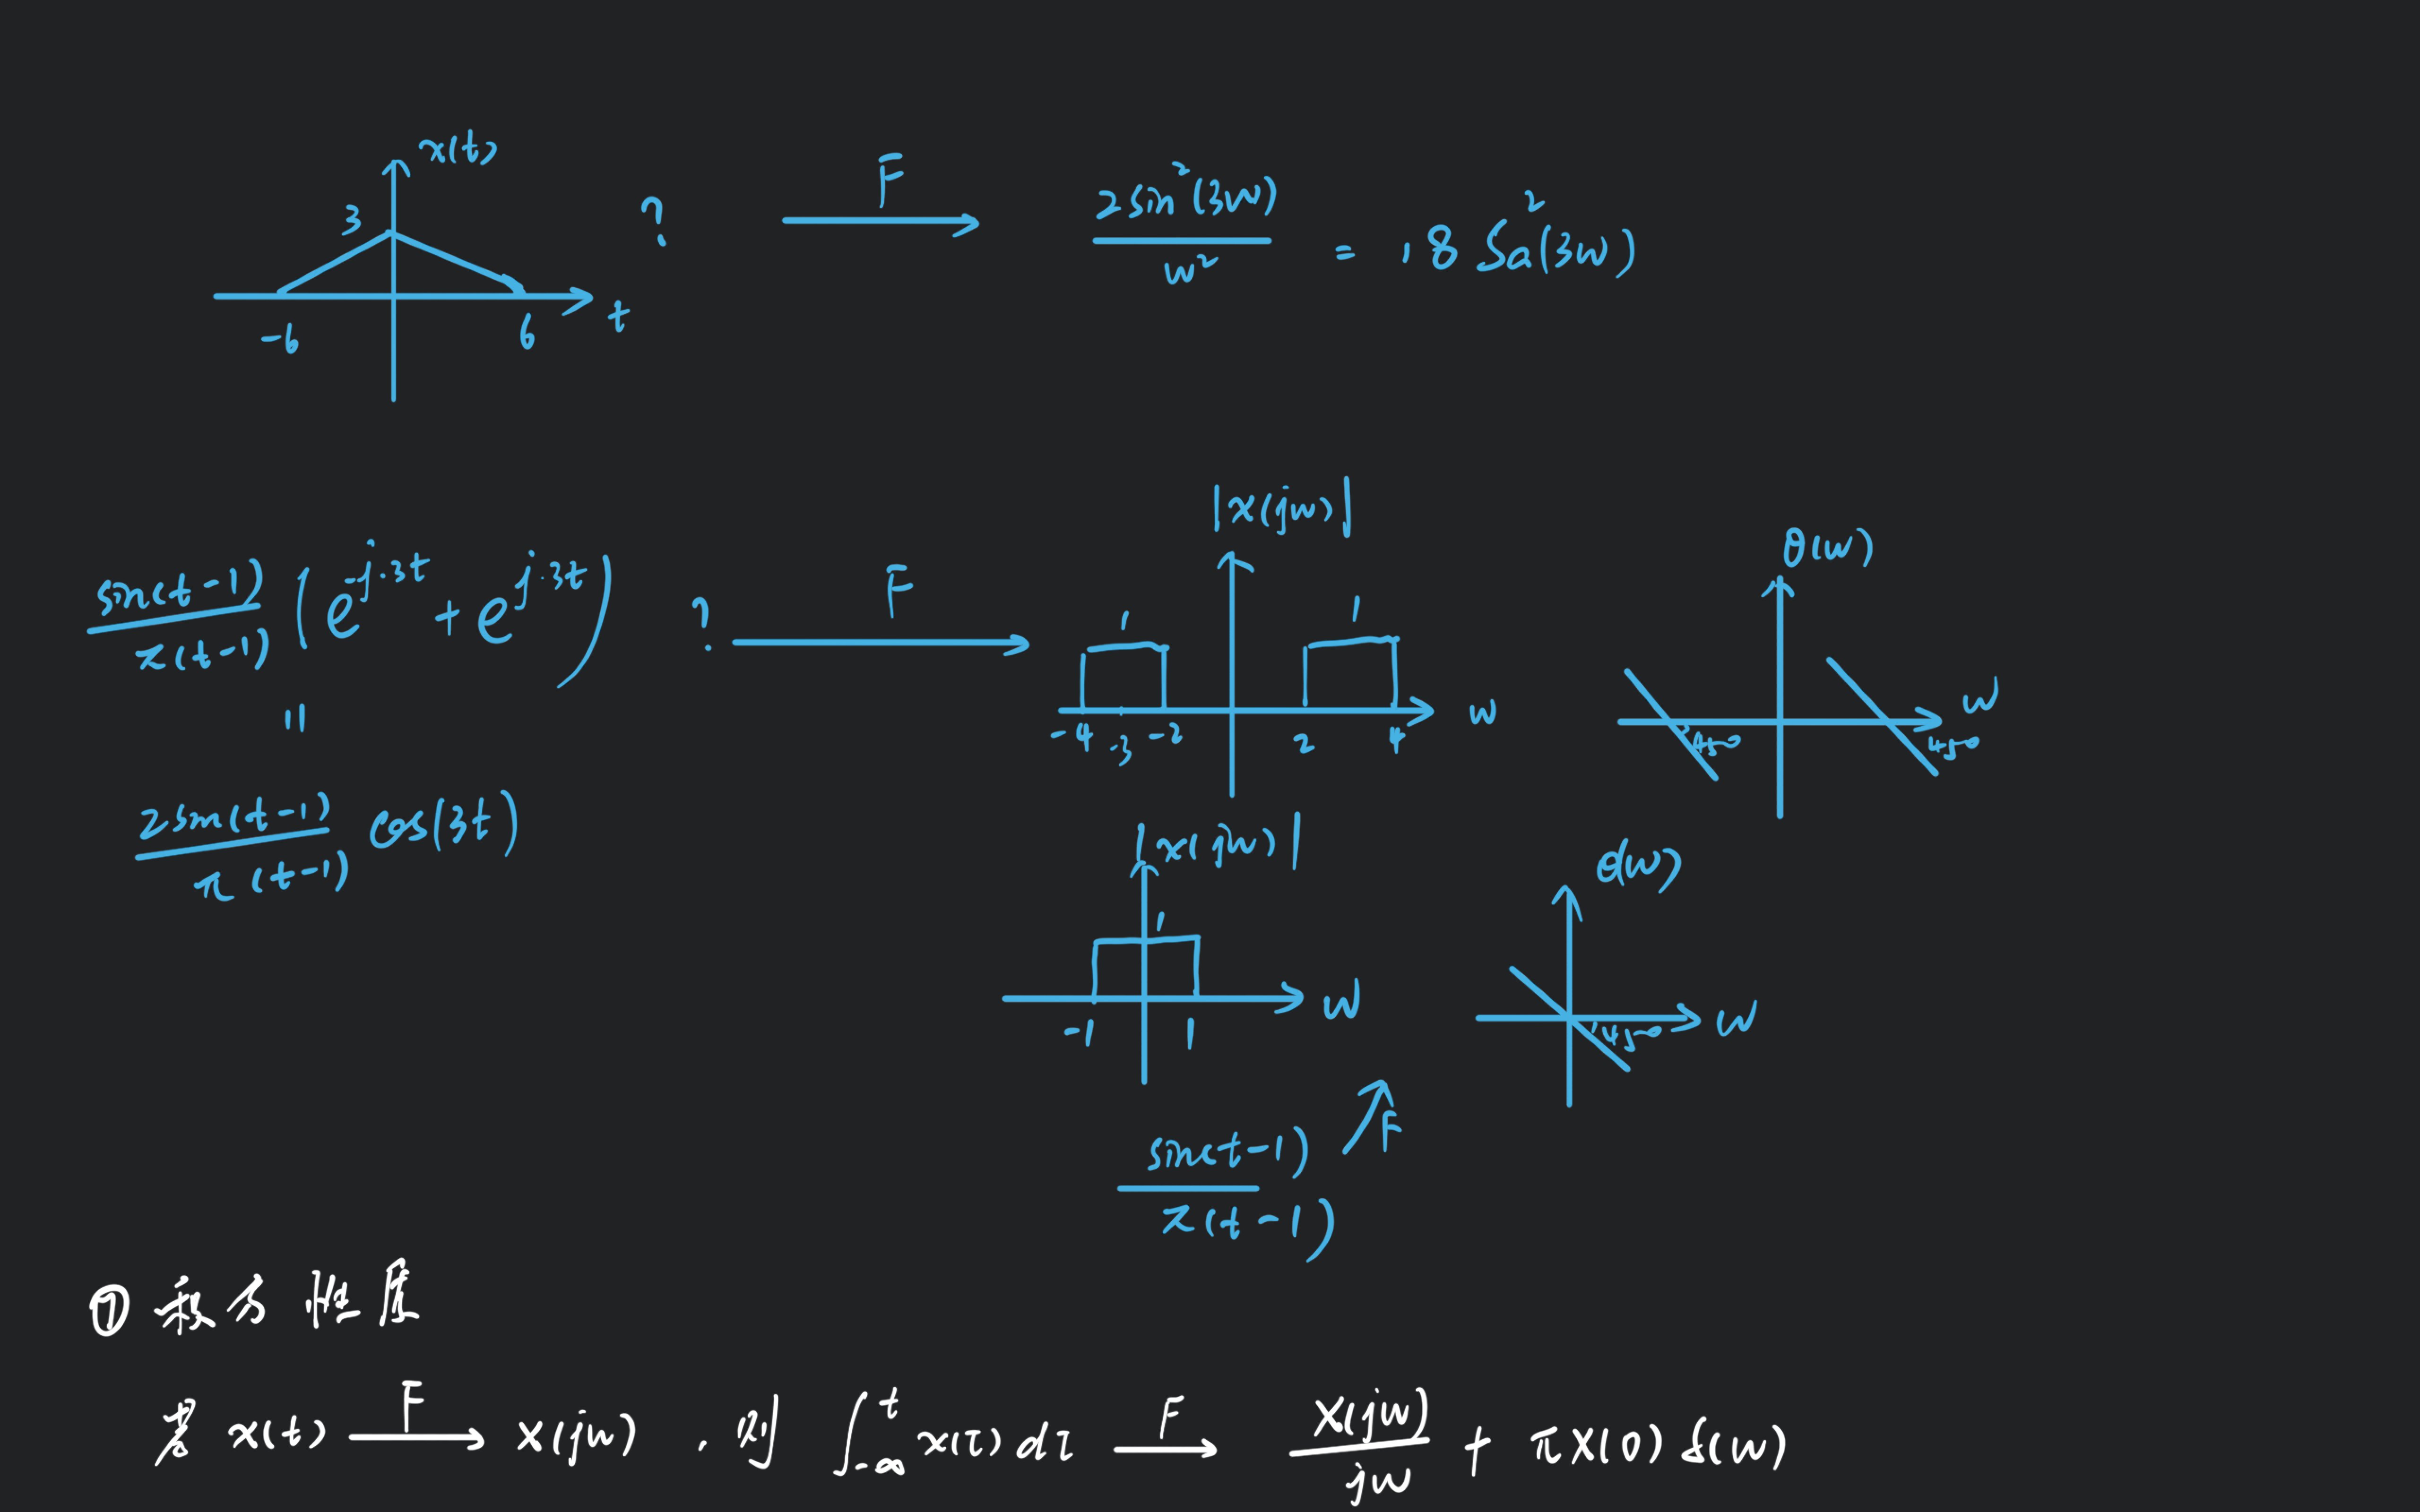 x(t)
3
-6 6 t
? F 2sin²(3w)/w² = 18 Sa²(3w)
sin(t-1)/π(t-1) (e^{-j·3t} + e^{j·3t}) ? F
=
2sin(t-1)/π(t-1) cos(3t)
|x(jw)|
1 1
-4 -3 -2 2 4 w
θ(w)
45° 45° w
|x(jw)|
1
-1 1 w
θ(w)
45° w
sin(t-1)/π(t-1) F
⑦ 积分性质
若 x(t) F x(jw) . 则 ∫_{-∞}^{t} x(τ) dτ F X(jw)/jw + πX(0) δ(w)